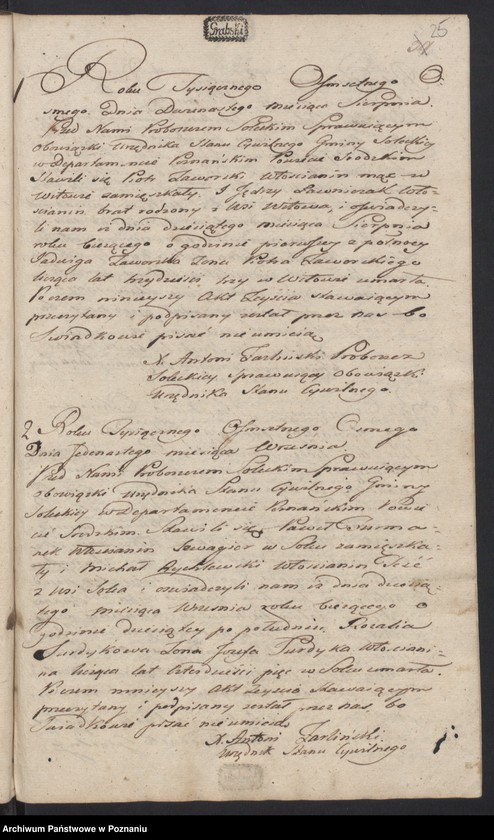 Grabski
25
Roku Tysiącznego Osmsetnego O:
smego. Dnia Dwunastego miesiąca Sierpnia.
Przed Nami Proboszczem Soleckim Sprawuiącym
Obowiązki Urzędnika Stanu Cywilnego Gminy Soleckiy
w Departamencie Poznańskim Powiecie Srodzkim
Stawili się Piotr Zaworski Włościanin mąż w
Witowie zamieszkały. I Jędrzy Ławniczak Wło-
scianin brat rodzony z Wsi Witowa, i oswiadczy-
li nam iż dnia dziesiątego miesiąca Sierpnia
roku bieżącego o godzinie pierwszey z pułnocy
Jadwiga Zaworska Zona Piotra Zaworskiego
licząca lat trzydzieści trzy w Witowie umarła.
Poczem ninieyszy Akt Zeyscia stawaiącym
przeczytany i podpisany został przez nas bo
Swiadkowie pisać nieumieią
X. Antoni Zarliński Proboszcz
Solecki Sprawuiący Obowiązki
Urzędnika Stanu Cywilnego.
2 Roku Tysiącznego Osmsetnego Osmego
Dnia Jedenastego miesiąca Września
Przed Nami Proboszczem Soleckim Sprawuiącym
Obowiązki Urzędnika Stanu Cywilnego Gminy
Soleckiy w Departamencie Poznańskim Powie-
cie Srodzkim. Stawili się Paweł Furma-
nek Włościanin Szwagier w Solcu zamieszka-
ły i Michał Rychlewski Włościanin Też
z Wsi Solca i oswiadczyli nam iż dnia
tego miesiąca Września roku bieżącego o
godzinie dziesiątey po południu. Rozalia
Zona Jozefa Włościani-
na licząca lat czterdzieści pięć w Solcu umarła.
Poczem ninieyszy Akt Zeyscia Stawaiącym
przeczytany i podpisany został przez nas, bo
Swiadkowie pisać nieumieią
X. Antoni Zarliński.
Urzędnik Stanu Cywilnego
Archiwum Państwowe w Poznaniu